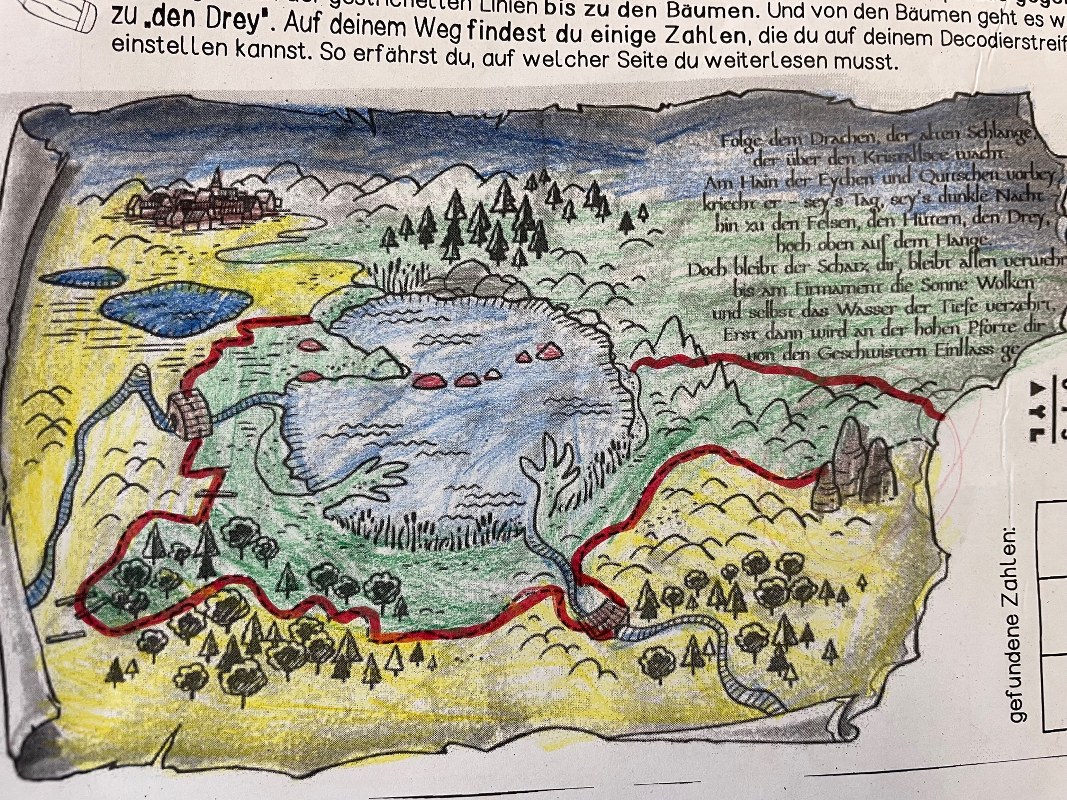 gestrichelten Linien bis zu den Bäumen. Und von den Bäumen geht es w
zu „den Drey". Auf deinem Weg findest du einige Zahlen, die du auf deinem Decodierstreif
einstellen kannst. So erfährst du, auf welcher Seite du weiterlesen musst.
Folge dem Drachen, der alten Schlange,
der über den Kristallsee wacht.
Am Hain der Eychen und Quitschen vorbey
kriecht er – sey's Tag, sey's dunkle Nacht
bin zu den Felsen, den Hütern, den Drey,
hoch oben auf dem Hange.
Doch bleibt der Schatz dir, bleibt allen verwehr
bis am Firmament die Sonne Wolken
und selbst das Wasser der Tiefe verzehrt,
Erst dann wird an der hohen Pforte dir
von den Geschwistern Einllass ge
gefundene Zahlen: